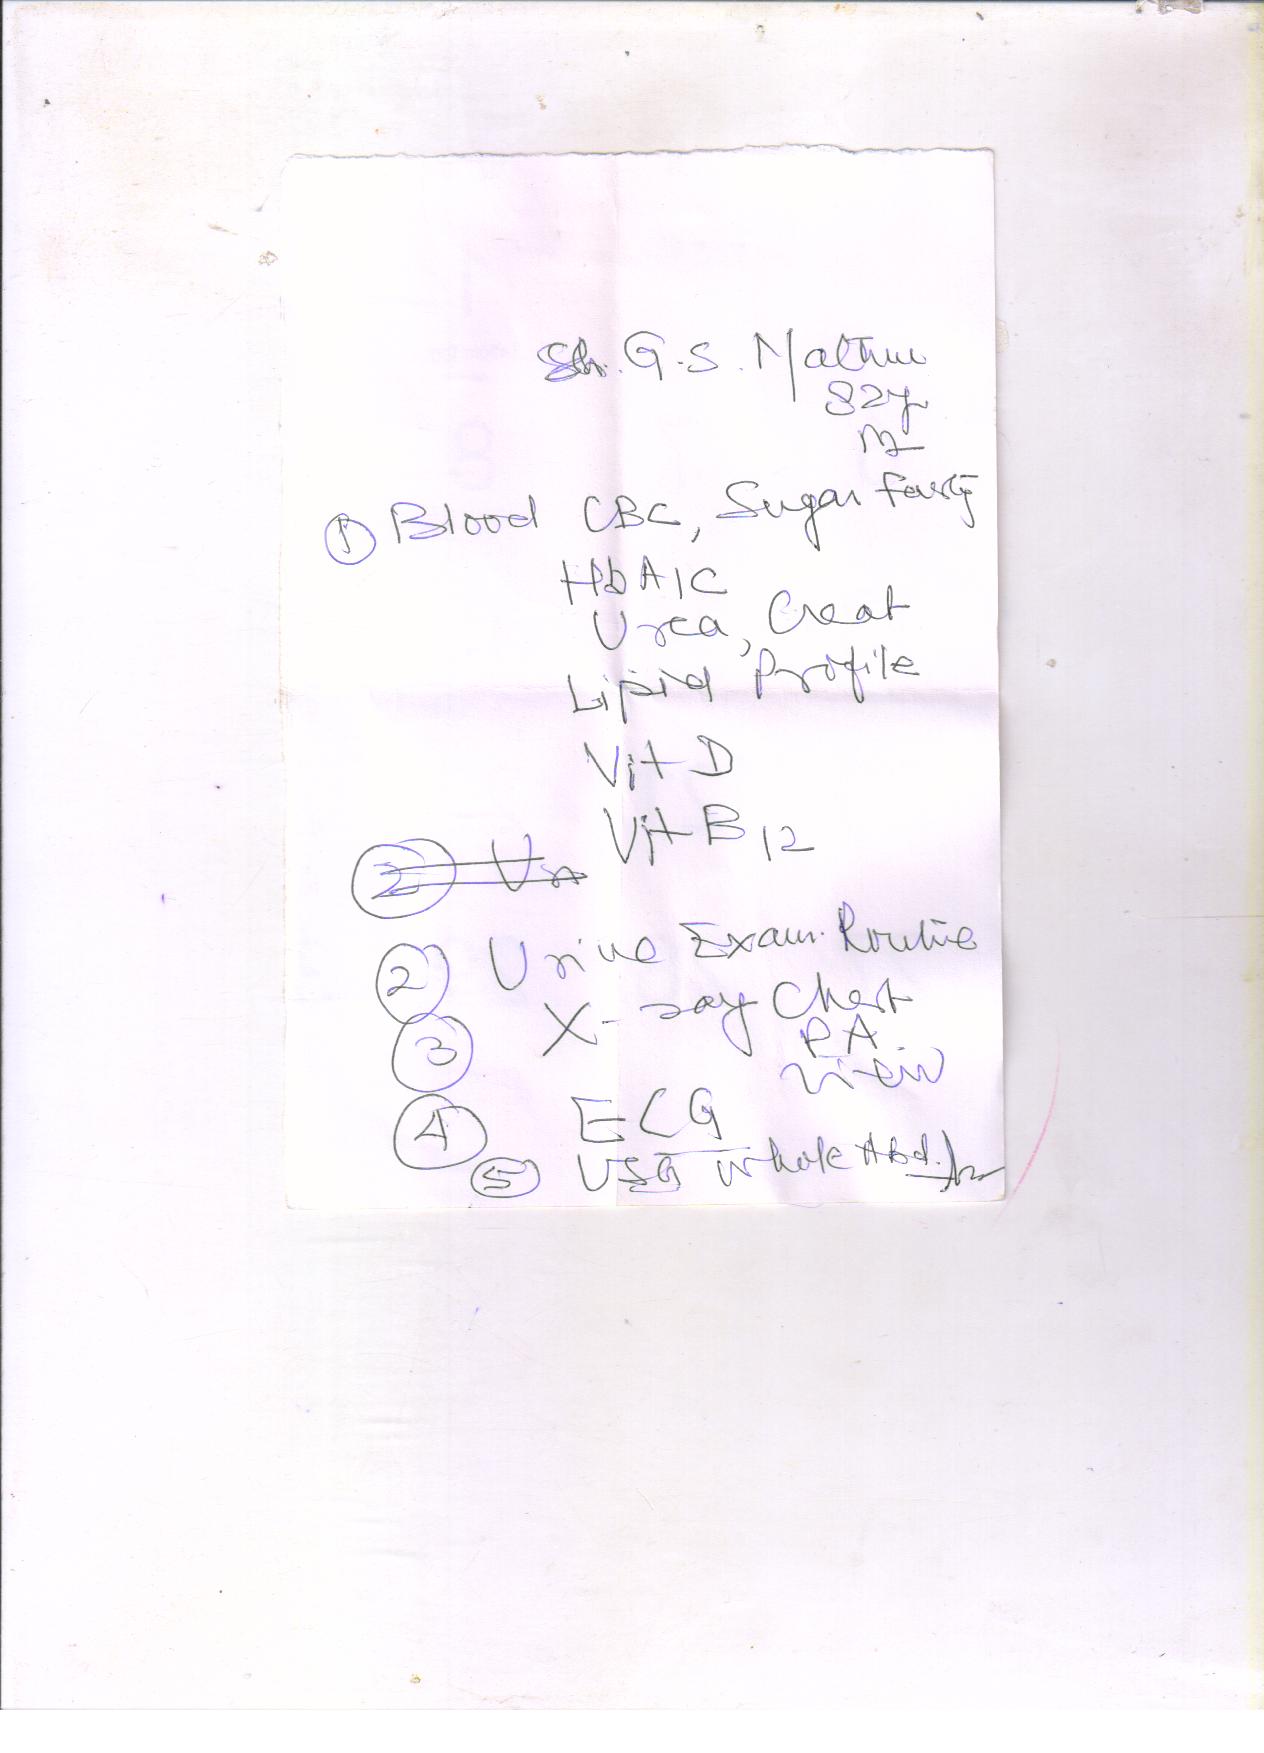 Sh. G.S. Mathur
82y
M
① Blood CBC, Sugar Fasting
HbA1C
Urea, Creat
Lipid Profile
Vit D
Vit B12
② Urine Exam. Routine
③ X-ray Chest
PA
View
④ ECG
⑤ USG Whole Abd.